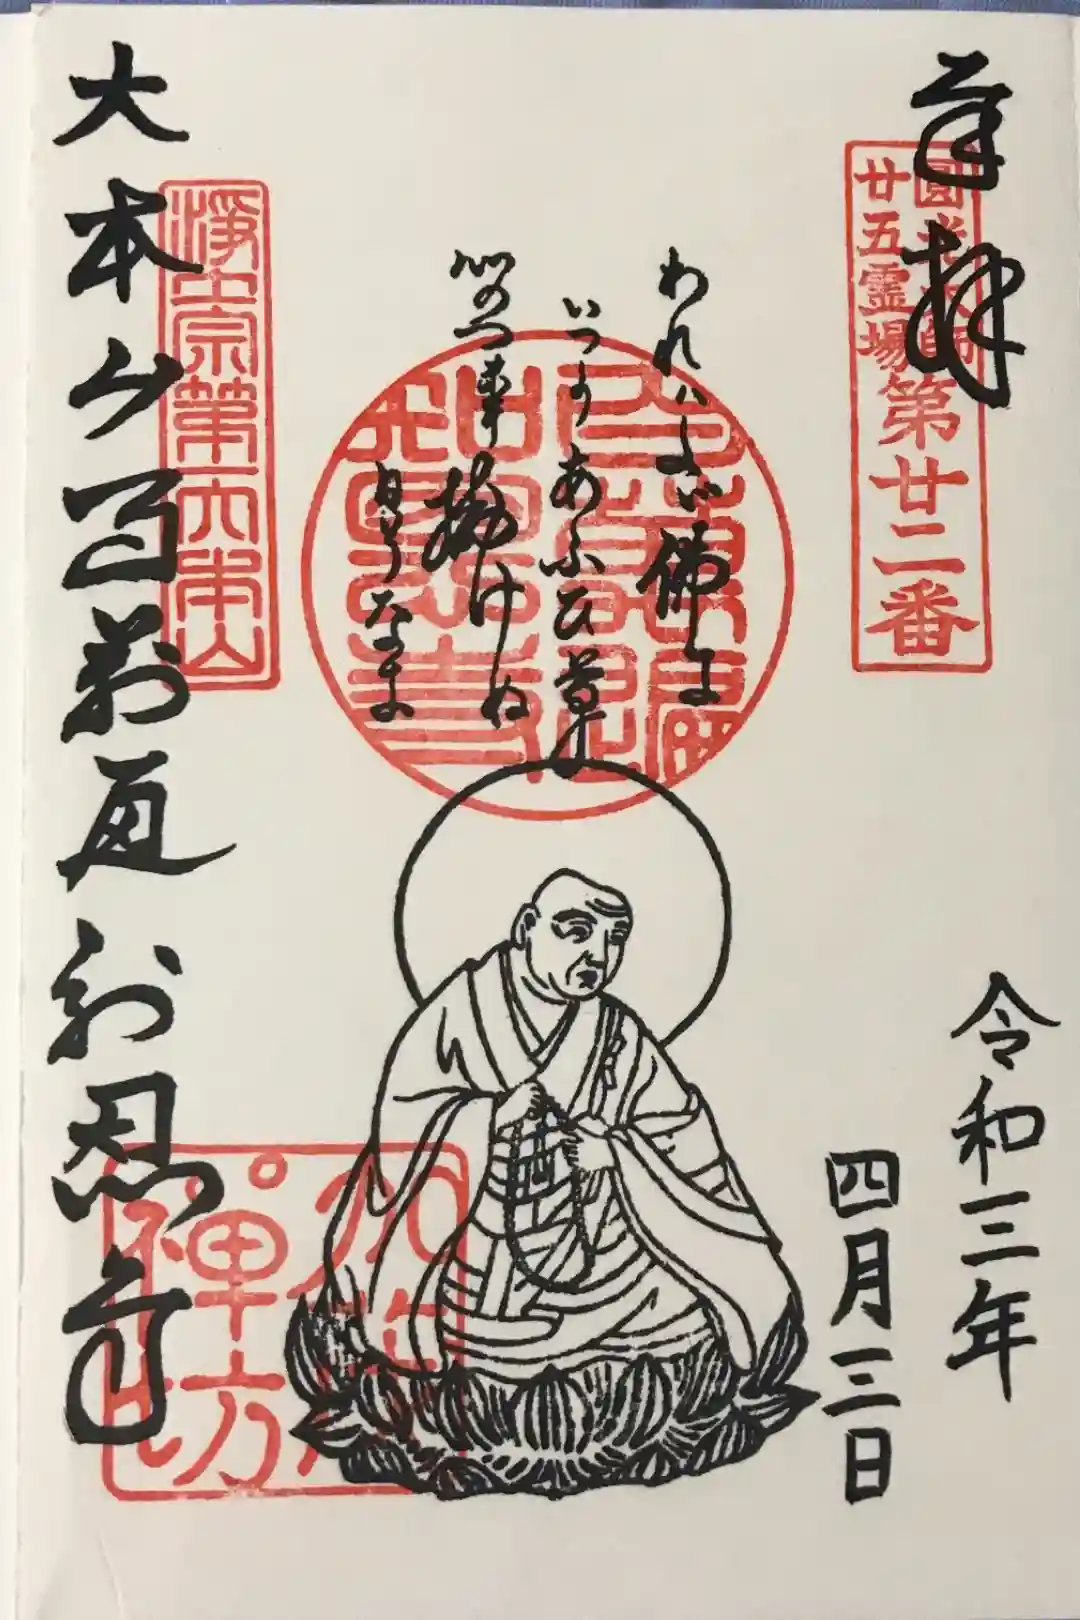 奉拝
圓光大師
廿五霊場
第廿二番
令和三年
四月三日
われハたゞ佛に
いつかあふひ草
心のつまに掛けぬ
日ぞなき
淨土宗第六本山
大本山百萬遍知恩寺